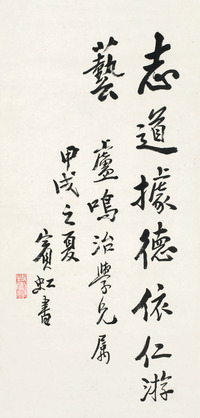 志道據德依仁游
藝
蘆鳴治學兄属
甲戌之夏
賓虹書